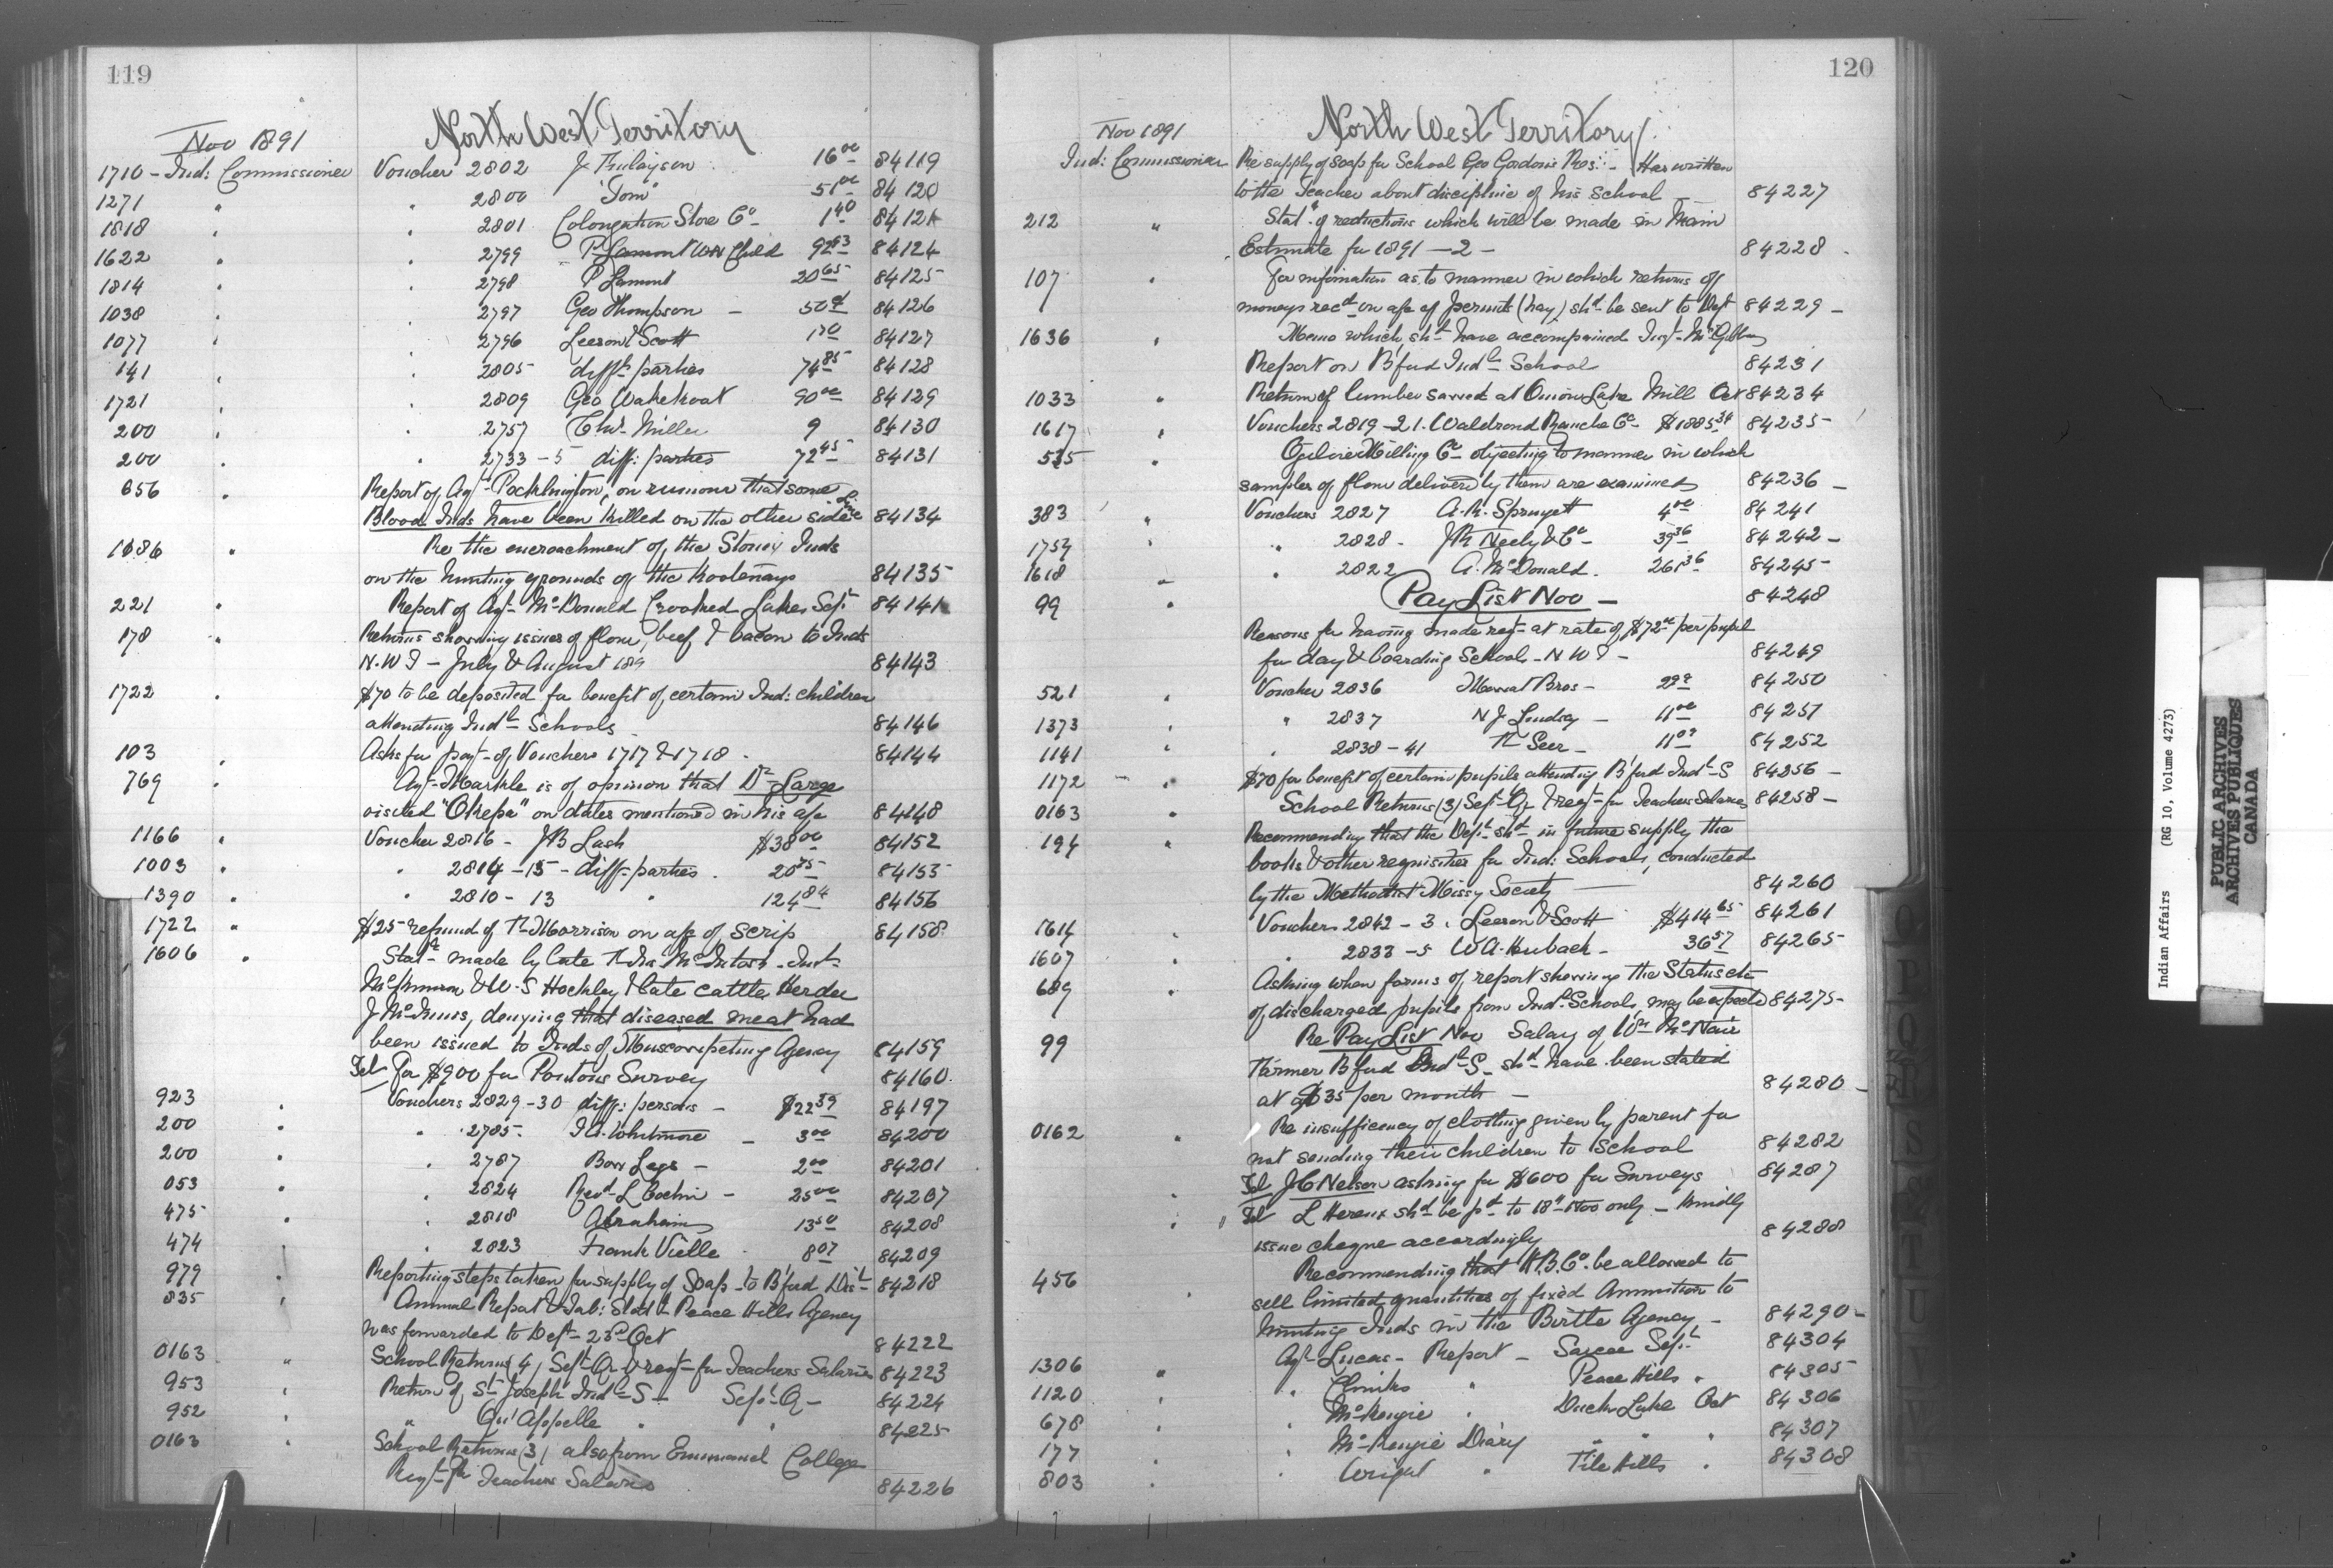 119
North West Territory
Nov 1891
1710 - Ind: Commissioner Voucher 2802 J Finlayson 16 00 84119
1271 " " 2800 "Tom" 51 00 84120
1818 " " 2801 Colongation Store Co 1 40 84121
1622 " " 2799 P Lamont Child 92 63 84124
1814 " " 2798 P Lamont 20 65 84125
1038 " 2797 Geo Thompson - 50 84126
1077 " 2796 Leeson & Scott 1 70 84127
141 " 2805 difft parties 74 85 84128
1721 " 2809 Geo Wahekoat 90 00 84129
200 " 2757 Chs Miller 9 84130
200 " " 2733-5 diff: parties 72 45 84131
656 " Report of Agt Pocklington, on rumour that some
Blood Inds have been killed on the other side line 84134
1686 " Re the encroachment of the Stoney Inds
on the hunting grounds of the Kootenays 84135
221 " Report of Agt McDonald Crooked Lakes Sept 84141
178 " Returns showing issues of flour, beef & bacon to Inds
N.W.T - July & August 189 84143
1722 " $70 to be deposited for benefit of certain Ind: children
attending Indl Schools 84146
103 " Asks for payt of Vouchers 1717 & 1718 - 84144
769 " Agt Markle is of opinion that Dr Large
visited "Okepa" on dates mentioned in his a/c 84148
1166 " Voucher 2816 - J B Lash $38 00 84152
1003 " " 2814-15 - diff parties . 20 75 84155
1390 " " 2810-13 " 124 84 84156
1722 " $25 refund of R Morrison on a/c of scrip 84158
1606 " Statt made by late McIntosh - Inst
& W.S Hockley & late cattle herder
J McInnis, denying that diseased meat had
been issued to Inds of Muscowpetung Agency 84159
Tel for $900 for Pontons Survey 84160
923 " Vouchers 2829-30 diff: persons - $22 39 84197
200 " " 2785 Whitmore - 3 00 84200
200 " 2787 Bow Legs - 2 00 84201
053 " 2824 Revd L Cochin - 25 00 84207
475 " " 2818 Abraham 13 50 84208
474 " 2823 Frank Vielle 8 07 84209
979 " Reporting steps taken for supply of Soap to B'ford Dist 84218
835 " Annual Report & Tab: Statt Peace Hills Agency
was forwarded to Dept 23d Oct 84222
0163 " School Returns (4) Sept Qr & reqt for Teachers Salaries 84223
953 " Return of St Joseph Indl S Sept Q - 84224
952 " Qu'Appelle " 84225
0163 " School Returns (3) also from Emmanuel College
Reqt for Teachers Salaries 84226
120
North West Territory
Nov 1891
Ind: Commissioner Re supply of soap for School Geo Gordons Res: - Has written
to the Teacher about discipline of his School 84227
212 " Statt of reductions which will be made in Main
Estimate for 1891-2 - 84228
107 " For information as to manner in which returns of
moneys recd on a/c of permits (hay) shd be sent to Dept 84229 -
1636 " Memo which shd have accompanied Inst McGibbon
Report on B'ford Indl School 84231
1033 " Return of lumber sawed at Onion Lake Mill Oct 84234
1617 " Vouchers 2819-21. Waldrond Ranche Co $1885 34 84235
525 " Ogilvie Milling Co objecting to manner in which
samples of flour delivered by them are examined 84236 -
383 " Vouchers 2827 A.R. Springett 4 00 84241
1757 " " 2828 - J R Neely & Co - 39 36 84242 -
1618 " " 2822 A. McDonald. 261 36 84245
99 " Pay List Nov - 84248
Reasons for having made reqt at rate of $72 00 per pupil
for day & boarding Schools - N W T - 84249
521 " Voucher 2836 Mowat Bros - 84250
1373 " " 2837 N J Lindsay - 11 00 84251
1141 " " 2838-41 84252
1172 " $70 for benefit of certain pupils attending B'ford Indl S 84256 -
0163 " School Returns (3) Sept Qr & reqt for Teachers Salaries 84258 -
194 " Recommending that the Dept shd in future supply the
books & other requisites for Ind: Schools, conducted
by the Methodist Missy Society 84260
1614 " Vouchers 2842-3. Leeson & Scott $414 65 84261
1607 " 2833-5 W A. Heubach - 36 57 84265
689 " Asking when forms of report showing the Status etc
of discharged pupils from Indl Schools, may be expected 84275
99 Re Pay List Nov Salary of Wm McNair
Farmer B'ford Indl S - shd have been stated
at $35 per month - 84280 -
0162 " Re insufficiency of clothing given by parent for
not sending their children to School 84282
" Tel J C Nelson asking for $600 for Surveys 84287
" Tel L Hereux shd be pd to 18th Nov only - Kindly
issue cheque accordingly 84288
456 " Recommending that H.B.Co. be allowed to
sell limited quantities of fixed Ammunition to
hunting Inds in the Birtle Agency - 84290 -
1306 " Agt Lucas - Report - Sarcee Sept 84304
1120 " " Clinks " Peace Hills " 84305
678 " McKenzie " Duck Lake Oct 84306
177 " McKenzie Diary " " " 84307
803 " Wright " File Hills " 84308
Indian Affairs (RG 10, Volume 4273)
PUBLIC ARCHIVES
ARCHIVES PUBLIQUES
CANADA